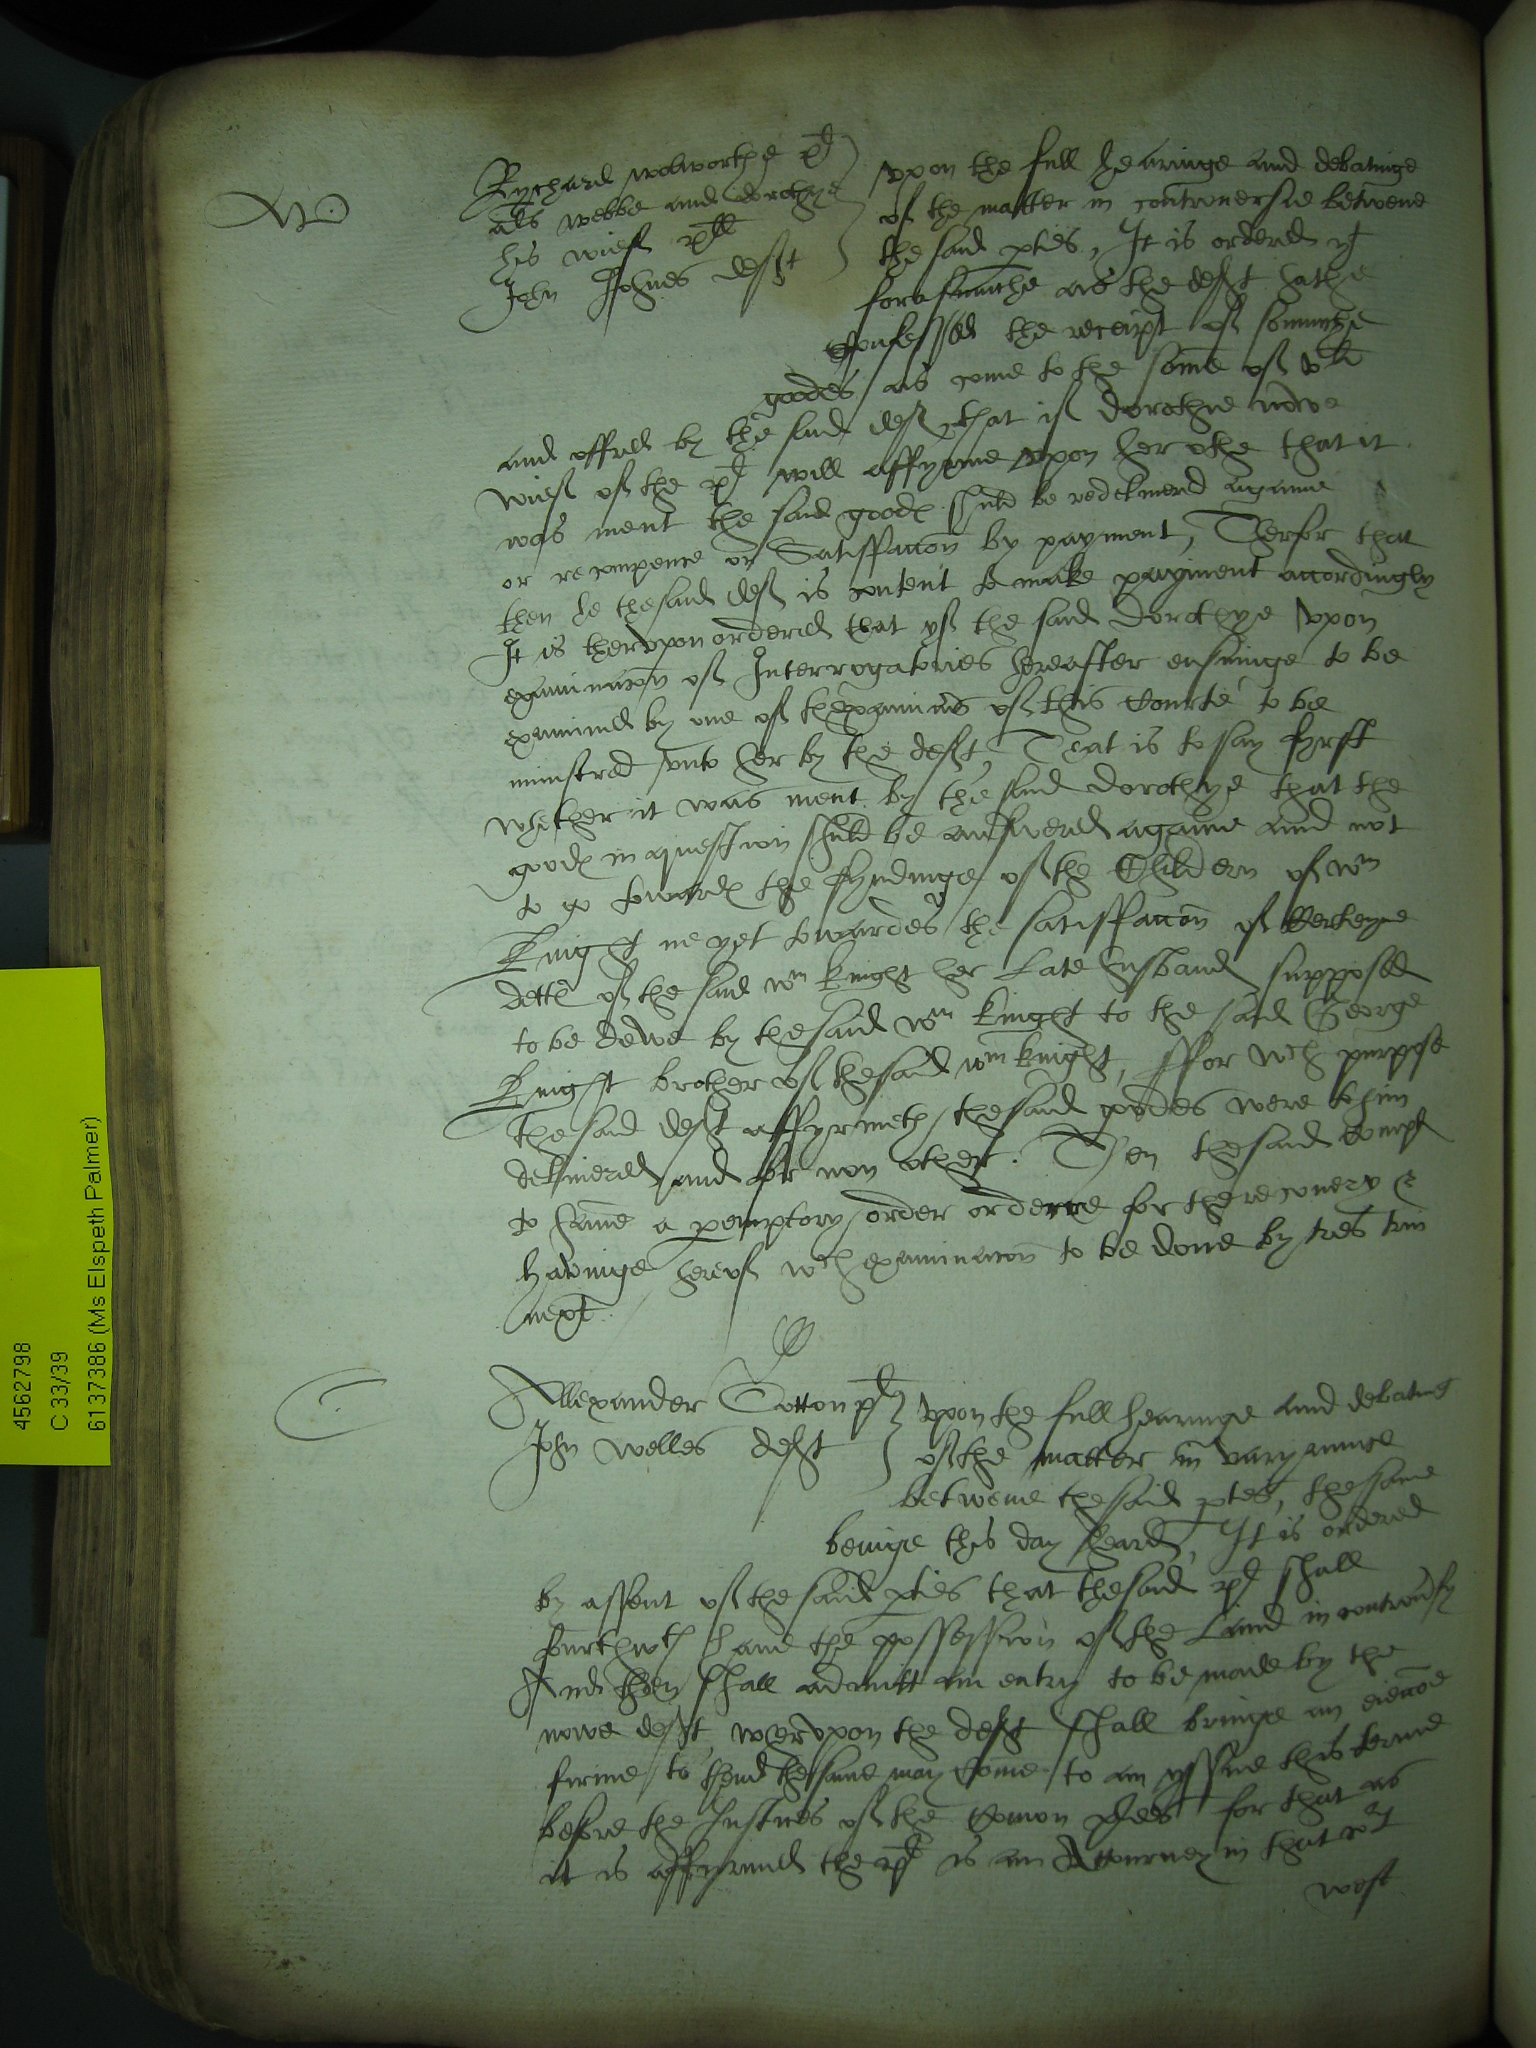 W
Rychard walworthe pl
als webbe and dorothye
his wief plts
John Johnes deft
vpon the full hearinge and debatinge
of the matter in controuersie betwene
the said pties, It is ordered yt
forasmuche as the deft hathe
Confessed the receipt of somuche
goodes as come to the some of vli
and offred by the said deft that if dorothie nowe
wief of the pl will affyrme vpon her othe that it
was ment the said goodes shuld be redeliuered agayne
or recompence or Satisffaccon by payment, Therfor that
then he thesaid deft is content to make payment accordingly
It is thervpon ordered that yf the said dorothye vpon
examinacon of Interrogatories hereafter ensuinge to be
examined by one of thexaminers of this Courte to be
minstred vnto her by the deft, That is to say fyrst
whether it was ment by the said dorothye that the
goodes in question shuld be answered agayne and not
to go towardes the fyndinge of the Children of wm
Knight ne yet towardes the satisffaccon of Certeyne
dettes of the said wm Knight her late husband supposed
to be dewe by thesaid wm Knight to the said George
Knight brother of thesaid wm knight, ffor wch purpose
the said deft affyrmeth thesaid goodes were to him
deliuered and for non other. Then thesaid Compl
to haue a pemptory order for the recouery &
havinge hereof wch examinacon to be done by tres trin
next.
C
Allexander Cotton pl
John Welles deft
vpon the full hearinge and debating
of the matter in varyaunce
betwene thesaid pties, thesame
beinge this day heard, It is ordered
by assent of the said pties that thesaid pl shall
furthwth haue the possession of the Land in controuersy
And then shall admitt an entry to be made by the
nowe deft, wherevpon the deft shall bringe an eieccone
firme to thend thesame may Come to an yssue this terme
before the Justices of the Comon plees for that as
it is affyrmed the pl is an Attourney in that crt
west
4562798
C 33/39
6137386 (Ms Elspeth Palmer)